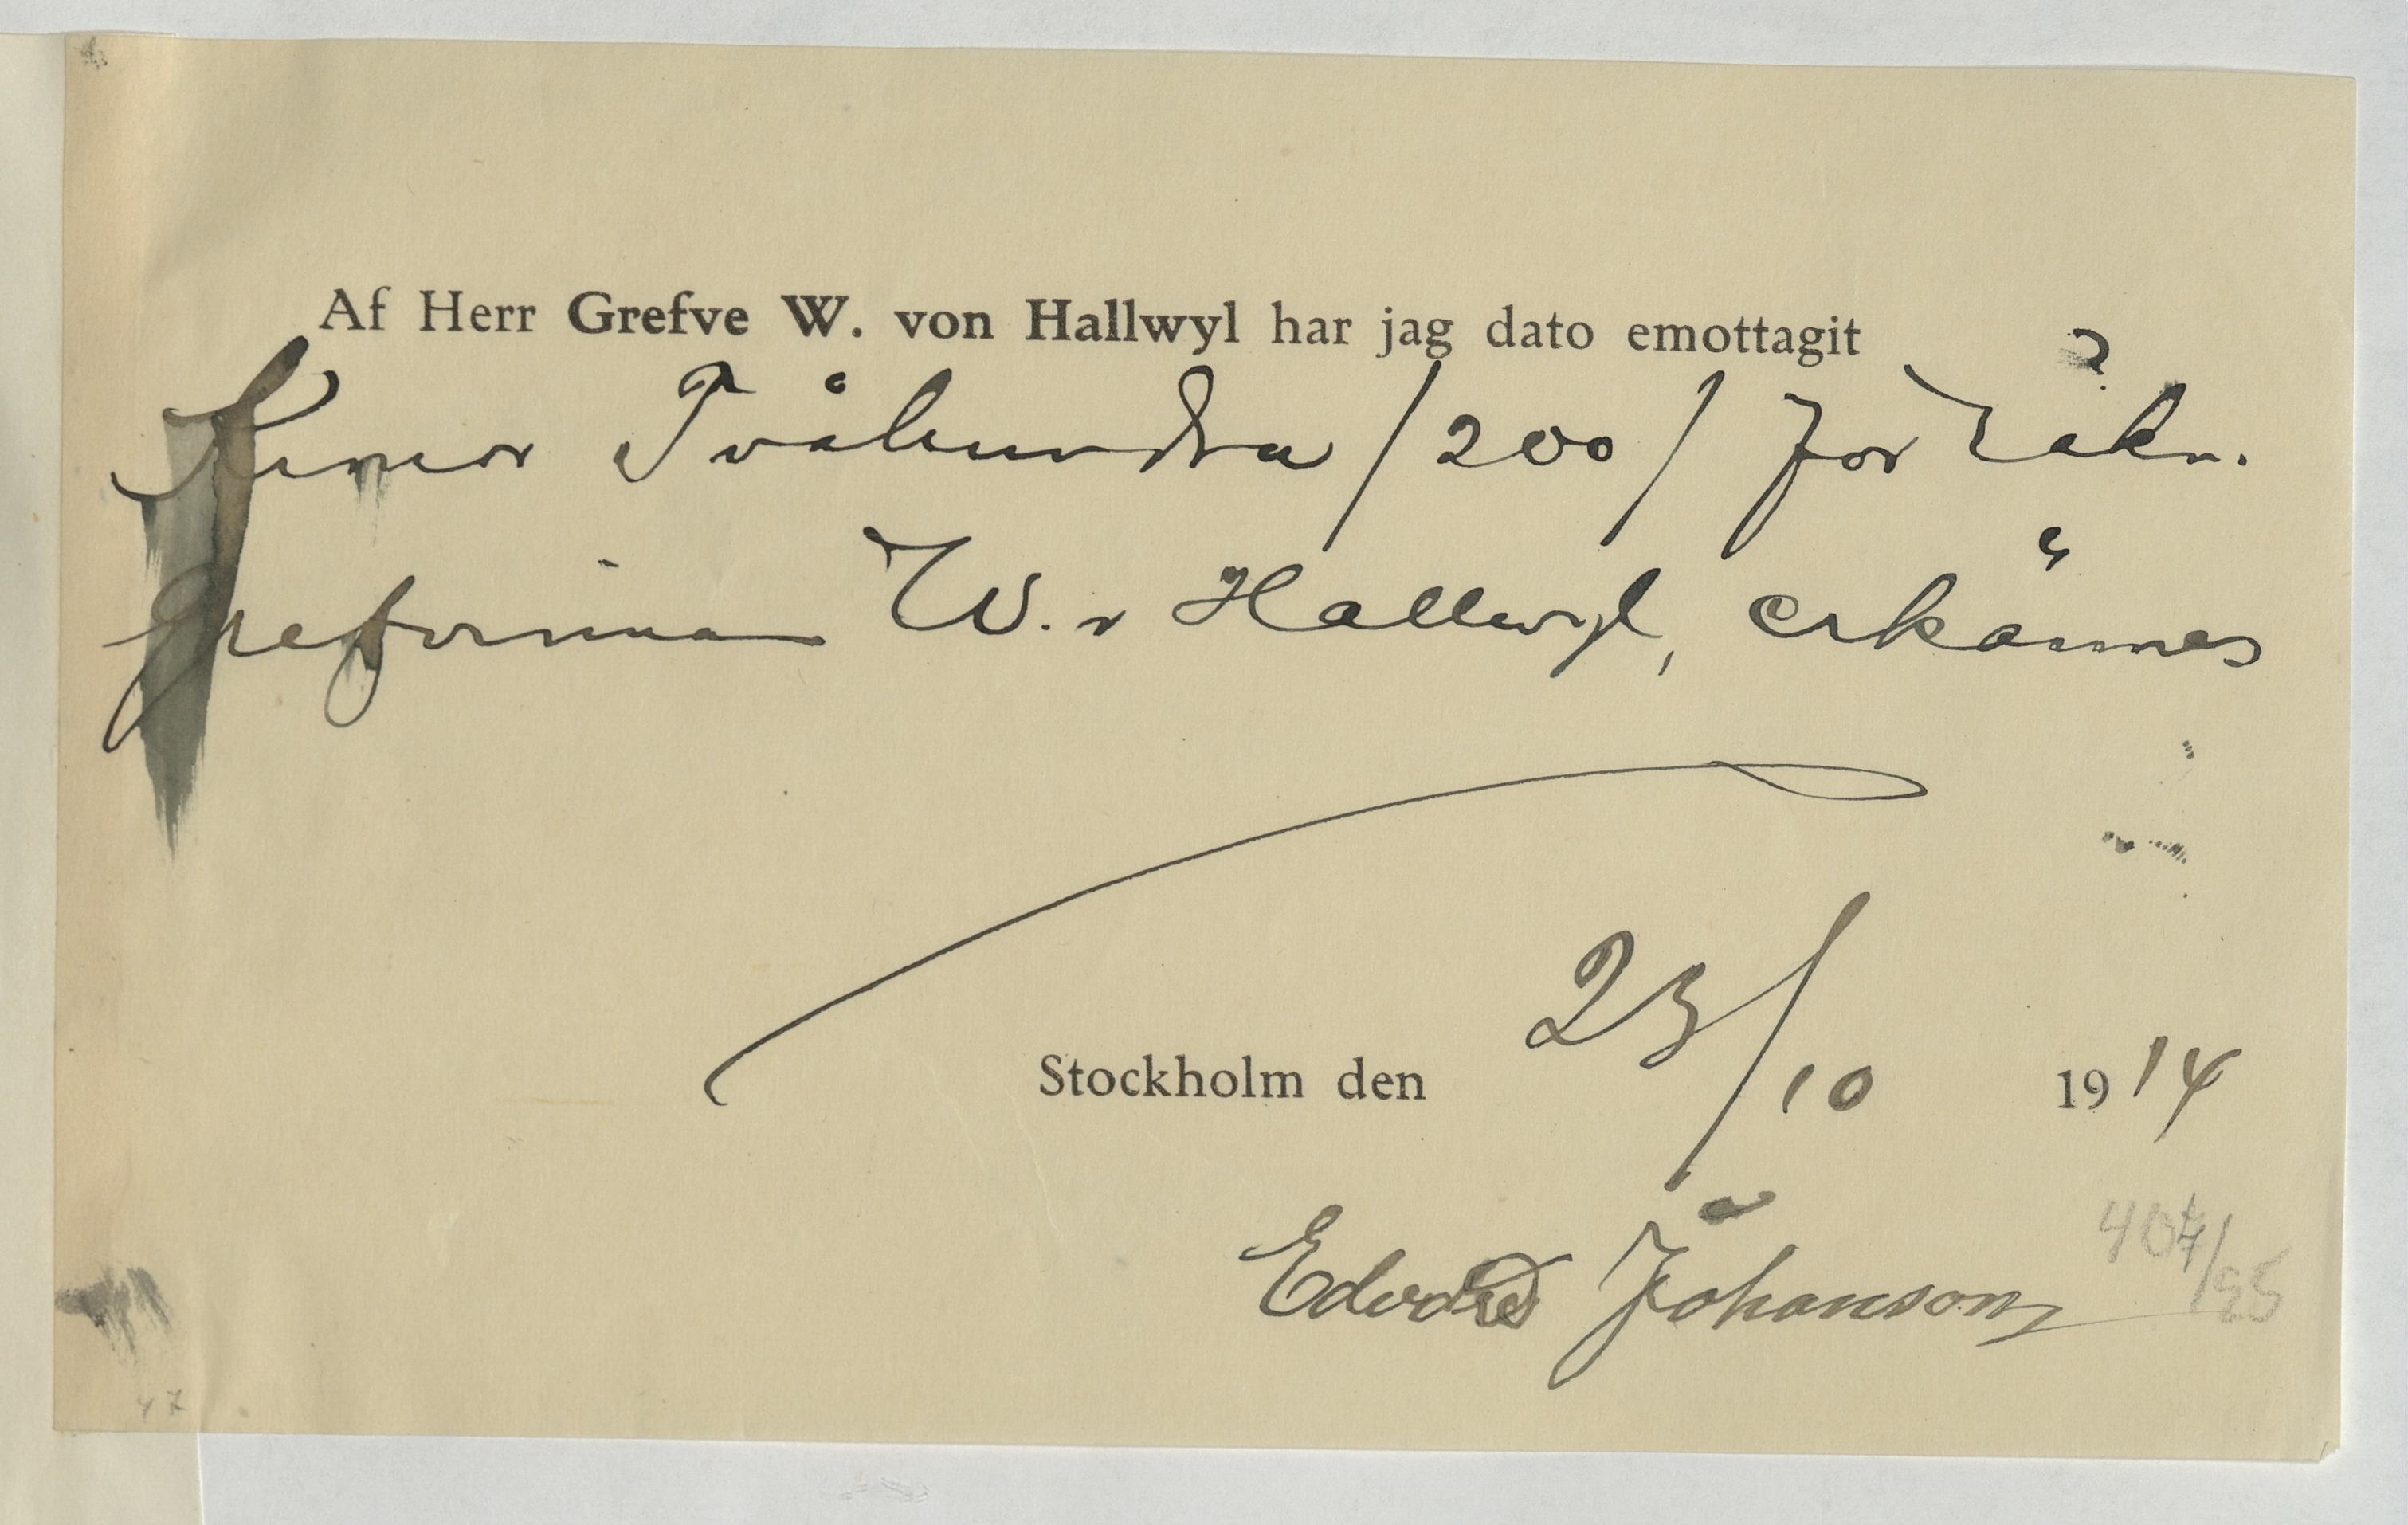 Af Herr Grefve W. von Hallwyl har jag dato emottagit
Kronor Tvåhundra /200/ för Räkn.
grefvinnan W. v Hallwyl, erkännes
Stockholm den 23/10 1914
Edvard Johanson
407/95